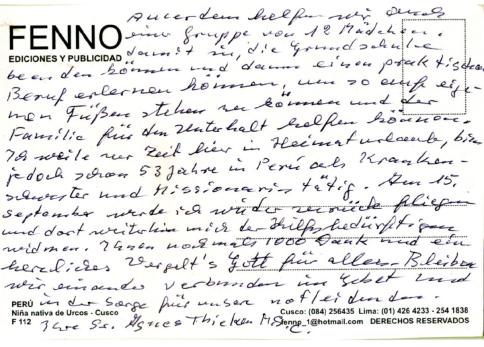 Ausserdem helfen wir, durch
FENNO
EDICIONES Y PUBLICIDAD
eine Gruppe von 12 Mädchen.
damit sie die Grundschule
beenden können und dann einen praktischen
Beruf erlernen können, um so auf eige-
nen Füßen stehen zu können und der
Familie für den Unterhalt helfen können.
Ich weile zur Zeit hier in Heimaturlaub, bin
jedoch schon 53 Jahre in Perú als Kranken-
schwester und Missionarin tätig. Am 15.
September werde ich wieder zurück fliegen
und dort weiterhin mich der Hilfsbedürftigen
widmen. Ihnen nochmals 1000 Dank und ein
herzliches Vergelt's Gott für alles. Bleiben
wir einander verbunden im Gebet und
in der Sorge für unsere notleidenden.
Ihre Sr. Agnes
PERÚ
Niña nativa de Urcos - Cusco
F 112
Cusco: (084) 256435 Lima: (01) 426 4233 - 254 1838
fenno_1@hotmail.com DERECHOS RESERVADOS